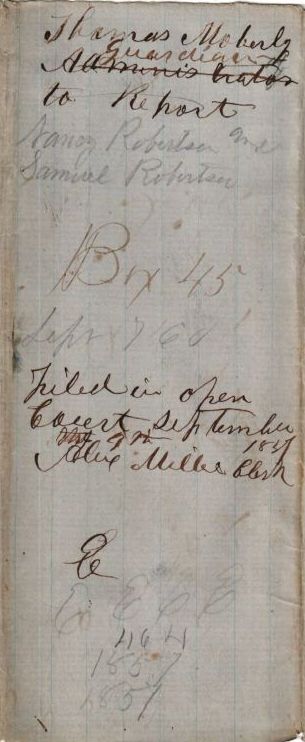 Thomas Moberly
Guardian
Administrator
to Report
Nancy Robertson and
Samuel Robertson
Box 45
Sept 7 60
Filed in open
Court September
the 9th 1857
Miller Clerk
E
E E E E
464
1857
1857